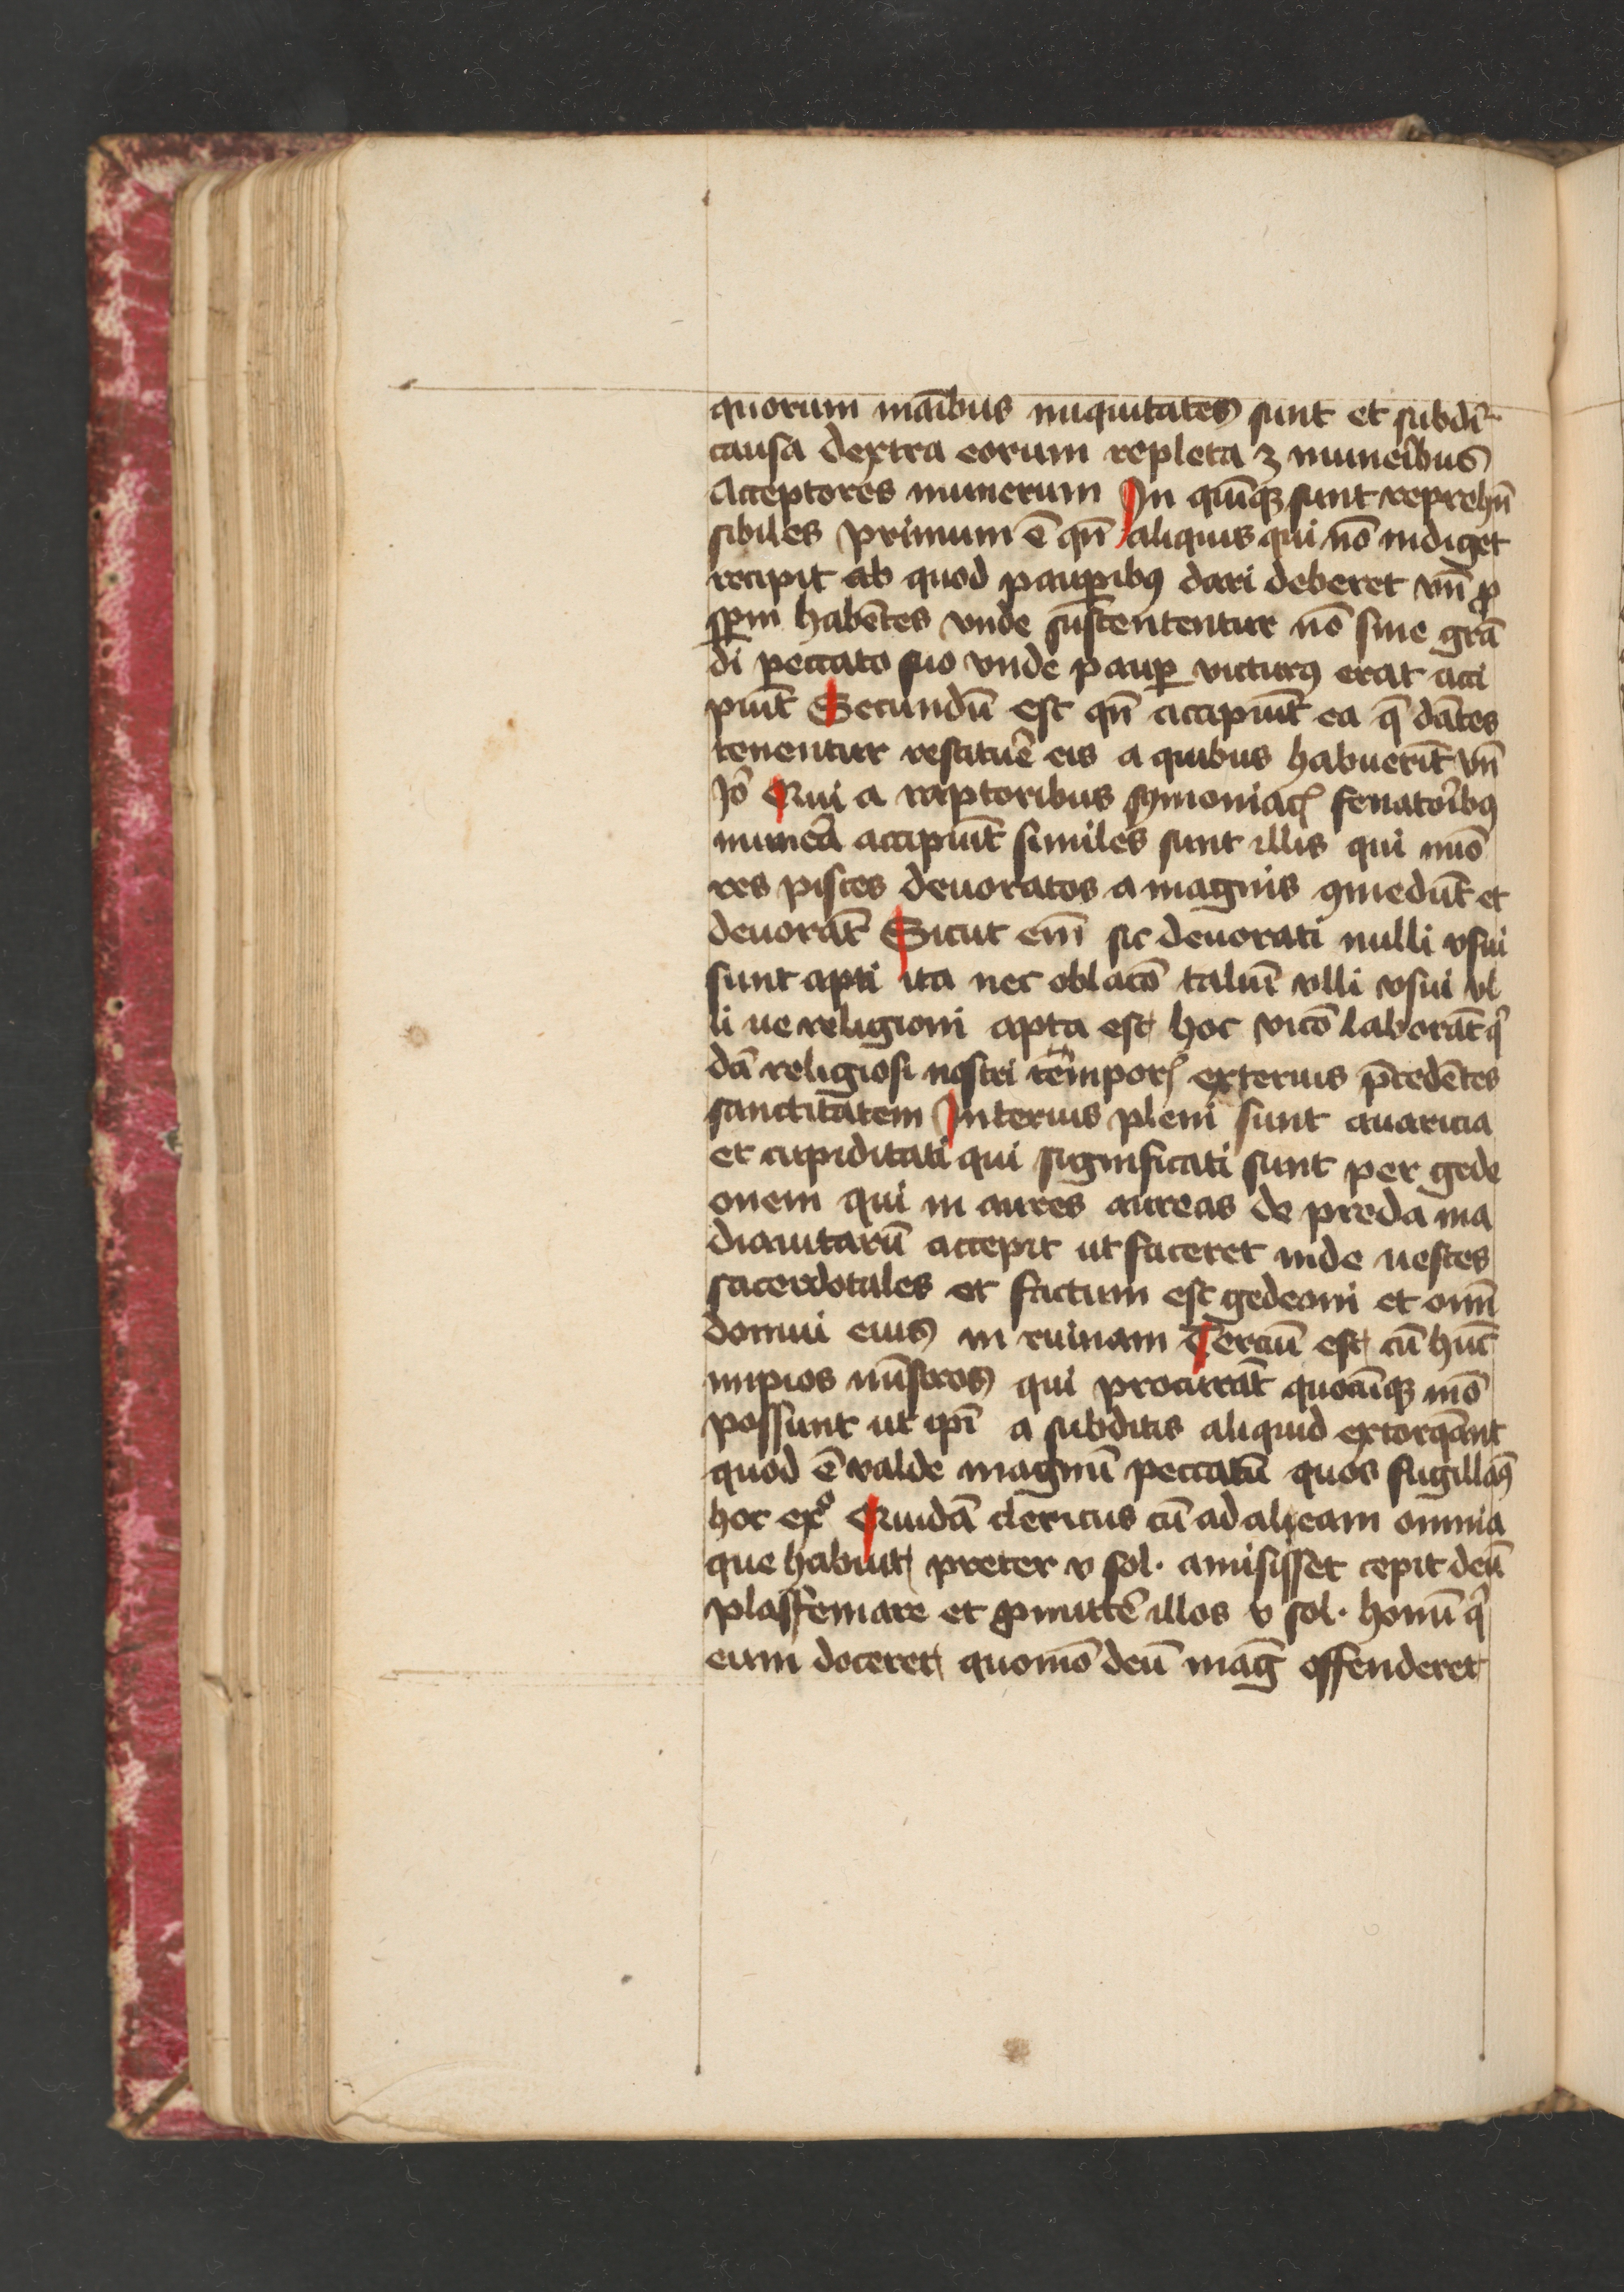 quorum maībus iniquitates sunt et subdī
causa dextra eorum repleta ꝫ munēibus
Acceptores munerum In quīqꝫ sunt reprehn̄
sibiles primum ē qn̄ aliquis qui nō indiget
recipit ab quod pauꝑibꝰ dari deberet vn̄ ꝓ
sꝑm habētes vnde sustententur nō sine grā
di peccato suo vnde pauꝑ victurꝰ erat acci
piūt Secundū est qn̄ accipiūt ea q̄ dātes
tenentur restituē eis a quibus habuerīt vn̄
Jō Qui a raptoribus symoniacꝭ fenatoībꝰ
munēa accipiūt similes sunt illis qui mīo
res pisces deuoratos a magnis ꝯmedūt et
deuorāt Sicut em̄ sic deuorati nulli vsui
sunt apti ita nec oblacō taliū vlli vsui vl
li ue religioni apta est hoc vicō laborāt qͥ
dā religiosi nostri temporꝭ exterius p̄tedētes
sanctitatem Interius pleni sunt auaricia
et cupiditati qui significati sunt per gede
onem qui in aures aureas de preda ma
dianitarū accepit ut faceret inde uestes
sacerdotales et factum est gedeoni et omī
domui eius in ruinam Terciū est cū hn̄t
impios mīstros qui procurāt quocūqꝫ mō
possunt ut ip̄i a subditis aliquid extorqānt
quod ē valde magnū peccatū quos sugillaꝰ
hoc exº Quidā clericus cū ad aleam omnia
que habuit preter v sol· amisisset cepit deū
plasfemare et ꝓmittē illos v sol· homī qͥ
eum doceret quomō deū maḡ offenderet